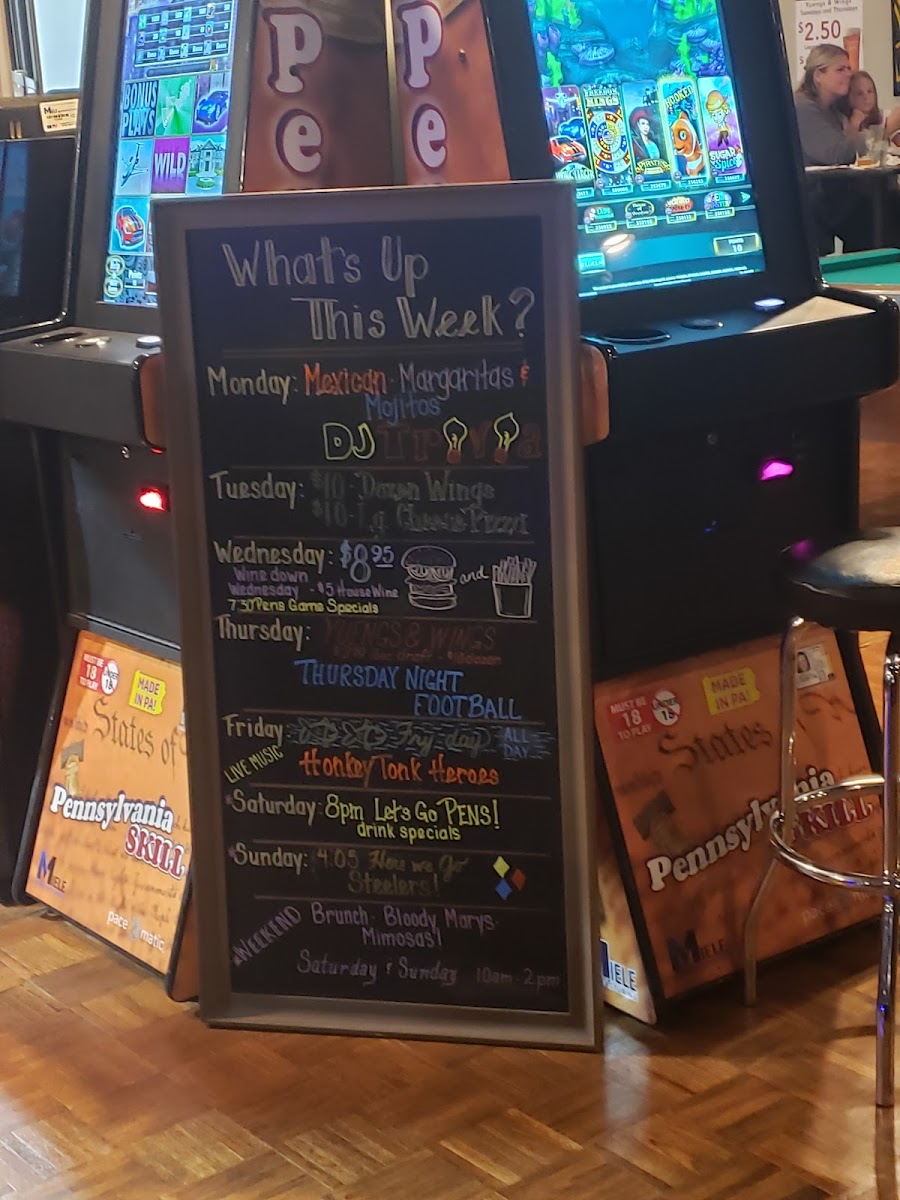 Yuengs & Wings
$2.50
BONUS PLAYS
WILD
Pe
Pe
FREEDOM RINGS
PIRATE'S
HOOKED!
SUGAR & Spice
What's Up
This Week?
Monday: Mexican · Margaritas &
Mojitos
DJ Trivia
Tuesday: $10 - Dozen Wings
$10 - Lg. Cheese Pizza
Wednesday: $8.95 and
Wine down
Wednesday - $5 House Wine
7:30 Pens Game Specials
Thursday: YUENGS & WINGS
THURSDAY NIGHT
FOOTBALL
Friday Fry day ALL DAY
LIVE MUSIC Honkey Tonk Heroes
Saturday: 8pm Let's Go PENS!
drink specials
Sunday: 4:05 Here we Go
Steelers!
WEEKEND Brunch · Bloody Marys ·
Mimosas!
Saturday & Sunday 10am - 2pm
MUST BE 18 TO PLAY
UNDER 18
MADE IN PA!
States of
Pennsylvania
SKILL
MIELE
pace matic
MUST BE 18 TO PLAY
UNDER 18
MADE IN PA!
States
Pennsylvania
SKILL
MIELE
pace
MIELE